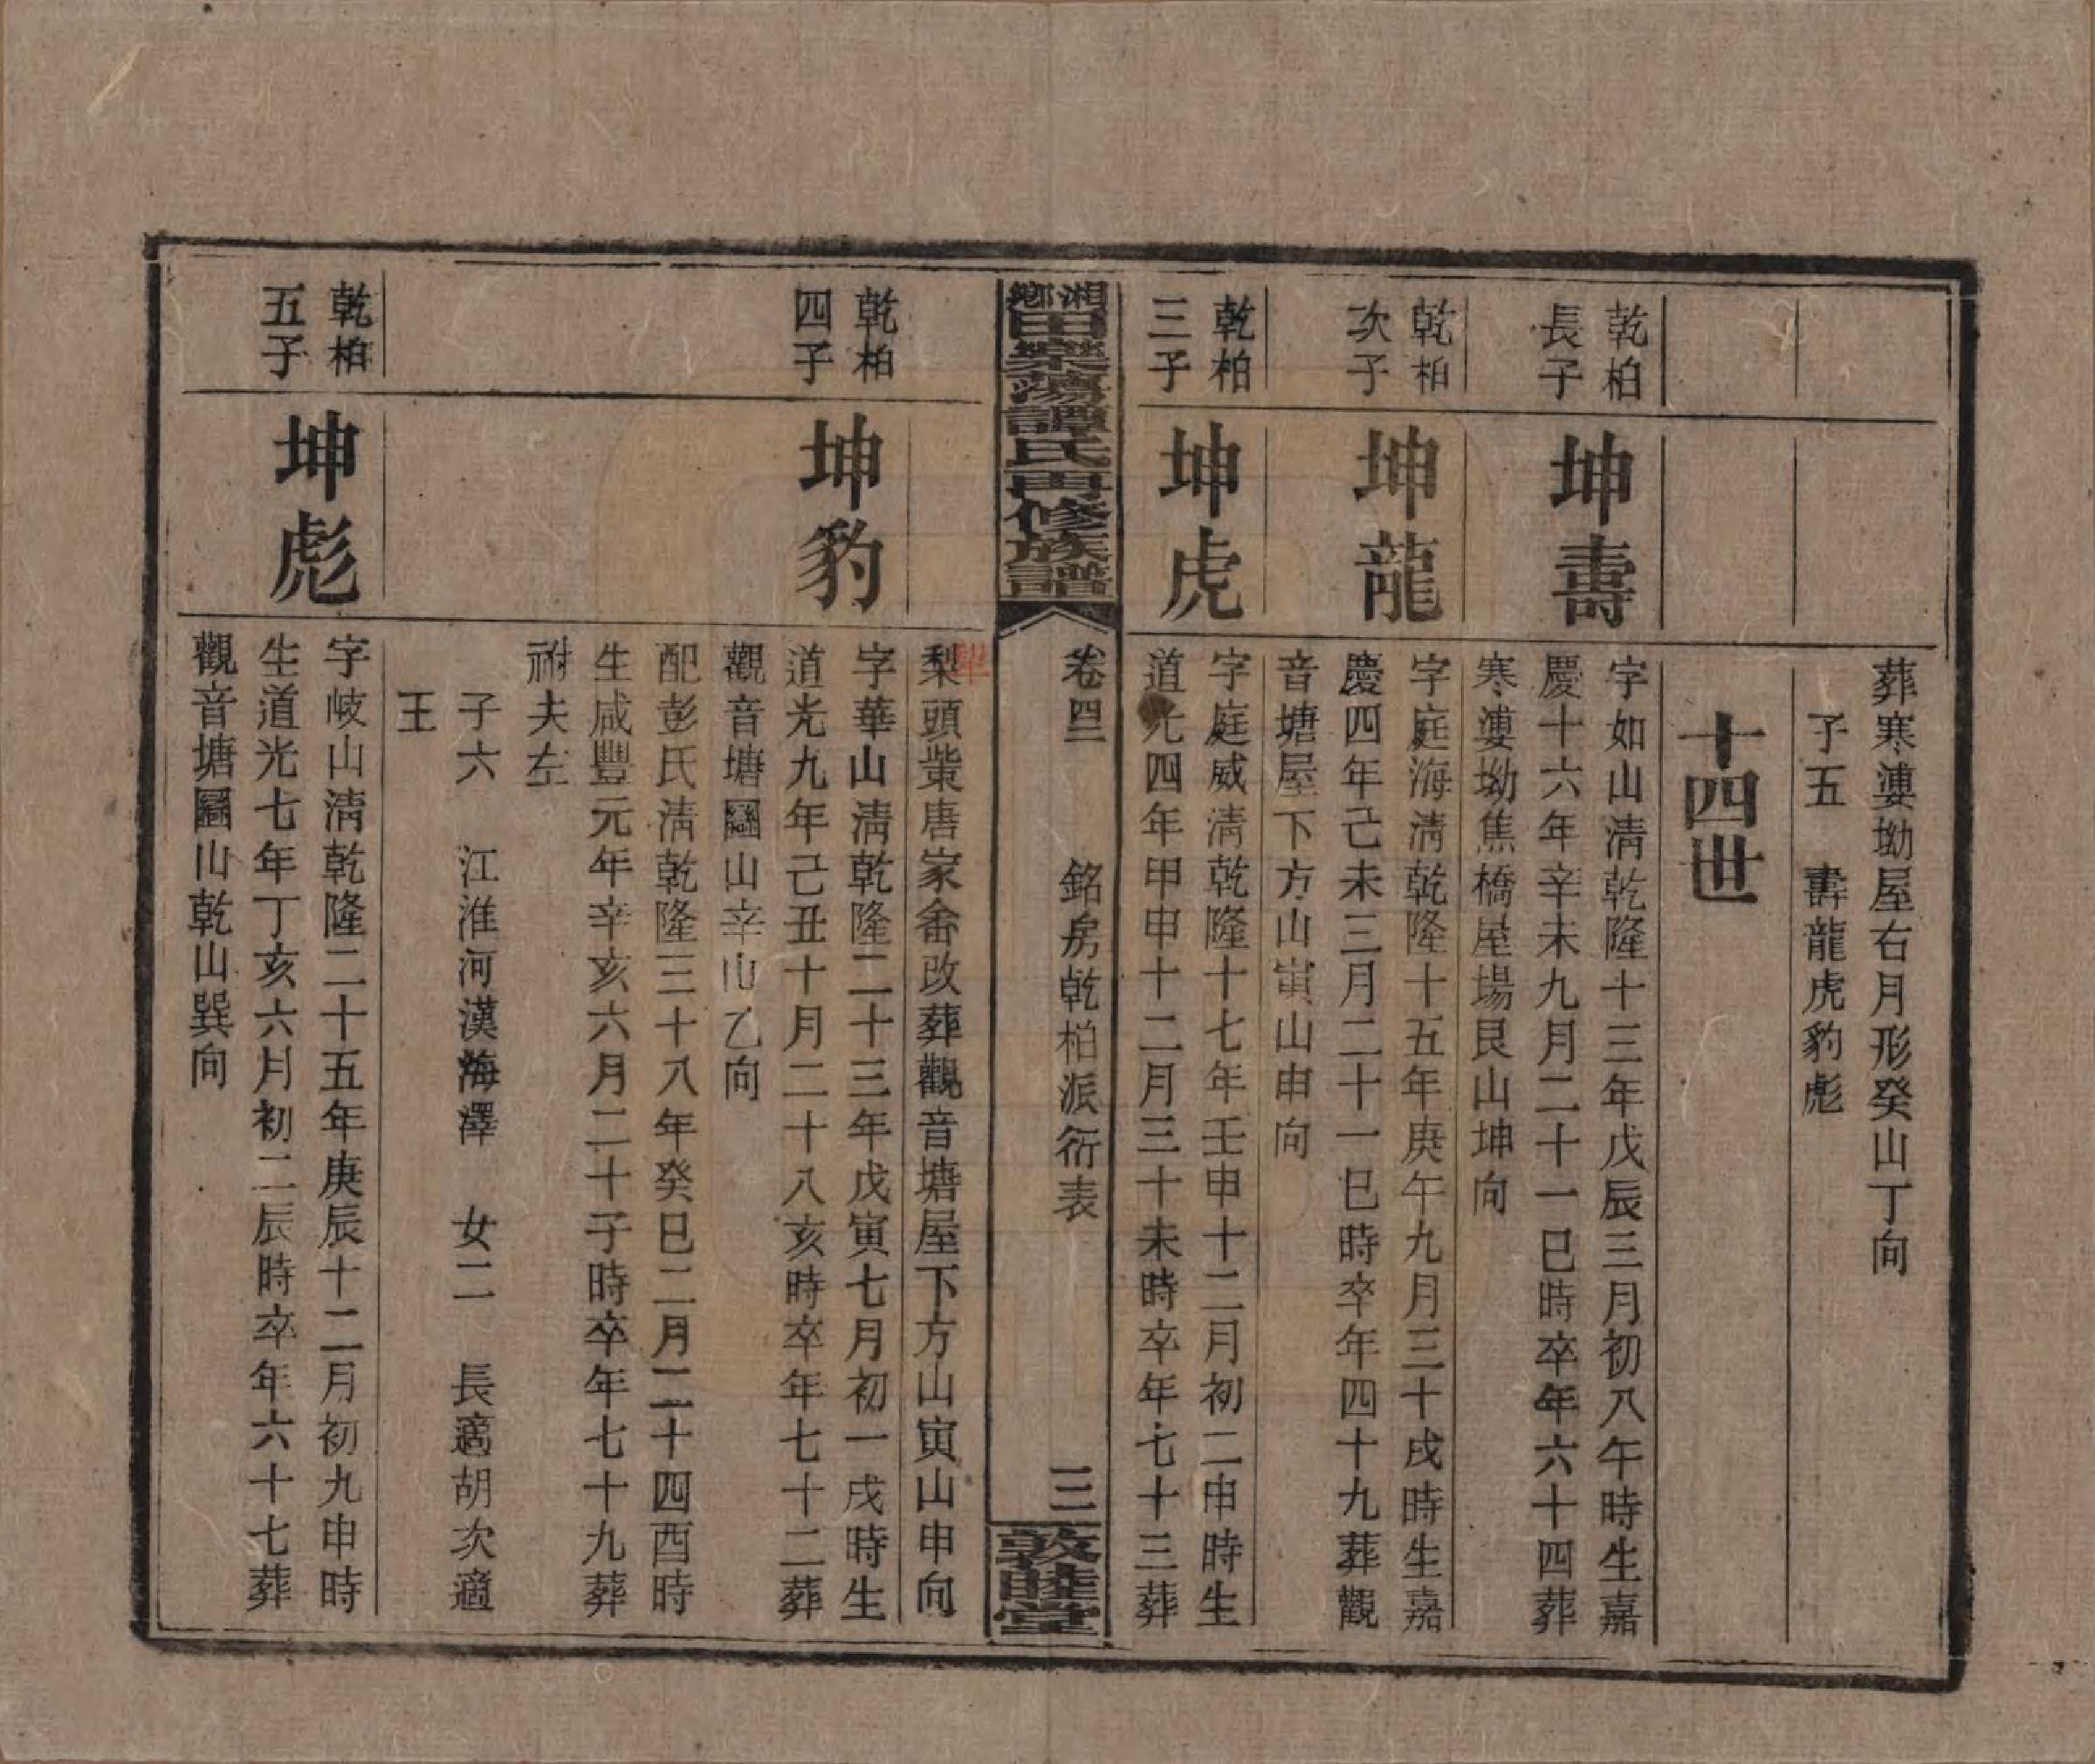 葬寒漊坳屋右月形癸山丁向
子五　壽龍虎豹彪
十四世
乾柏長子
坤壽
字如山淸乾隆十三年戊辰三月初八午時生嘉
慶十六年辛未九月二十一巳時卒年六十四葬
寒漊坳焦橋屋場艮山坤向
乾柏次子
坤龍
字庭海淸乾隆十五年庚午九月三十戌時生嘉
慶四年己未三月二十一巳時卒年四十九葬觀
音塘屋下方山寅山申向
乾柏三子
坤虎
字庭威淸乾隆十七年壬申十二月初二申時生
道光四年甲申十二月三十未時卒年七十三葬
湘鄉田樂蕩譚氏四修族譜
卷四　銘房乾柏派衍表
三
敦睦堂
犁
梨頭觜唐家畬改葬觀音塘屋下方山寅山申向
乾柏四子
坤豹
字華山淸乾隆二十三年戊寅七月初一戌時生
道光九年己丑十月二十八亥時卒年七十二葬
觀音塘圝山辛山乙向
配彭氏淸乾隆三十八年癸巳二月二十四酉時
生咸豐元年辛亥六月二十子時卒年七十九葬
祔夫左
子六　江淮河漢海澤　女二　長適胡次適
王
乾柏五子
坤彪
字岐山淸乾隆二十五年庚辰十二月初九申時
生道光七年丁亥六月初二辰時卒年六十七葬
觀音塘圝山乾山巽向